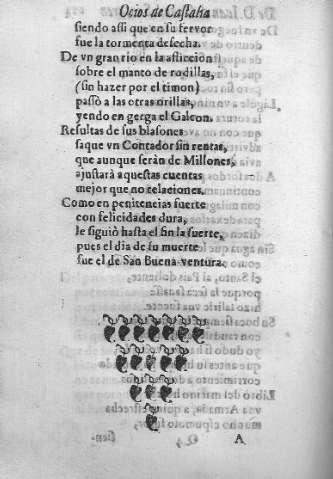 Ocios de Castalia
siendo assi que en su fervor
fue la tormenta desecha.
De vn gran rio en la afliccion
sobre el manto de rodillas,
(sin hazer por el timon)
passò a las otras orillas,
yendo en gerga el Galeon.
Resultas de sus blasones
saque vn Contador sin rentas,
que aunque seràn de Millones,
ajustarà aquestas cuentas
mejor que no relaciones.
Como en penitencias fuerte
con felicidades dura,
le siguiò hasta el fin la suerte,
pues el dia de su muerte
fue el de San Buena-ventura.
A